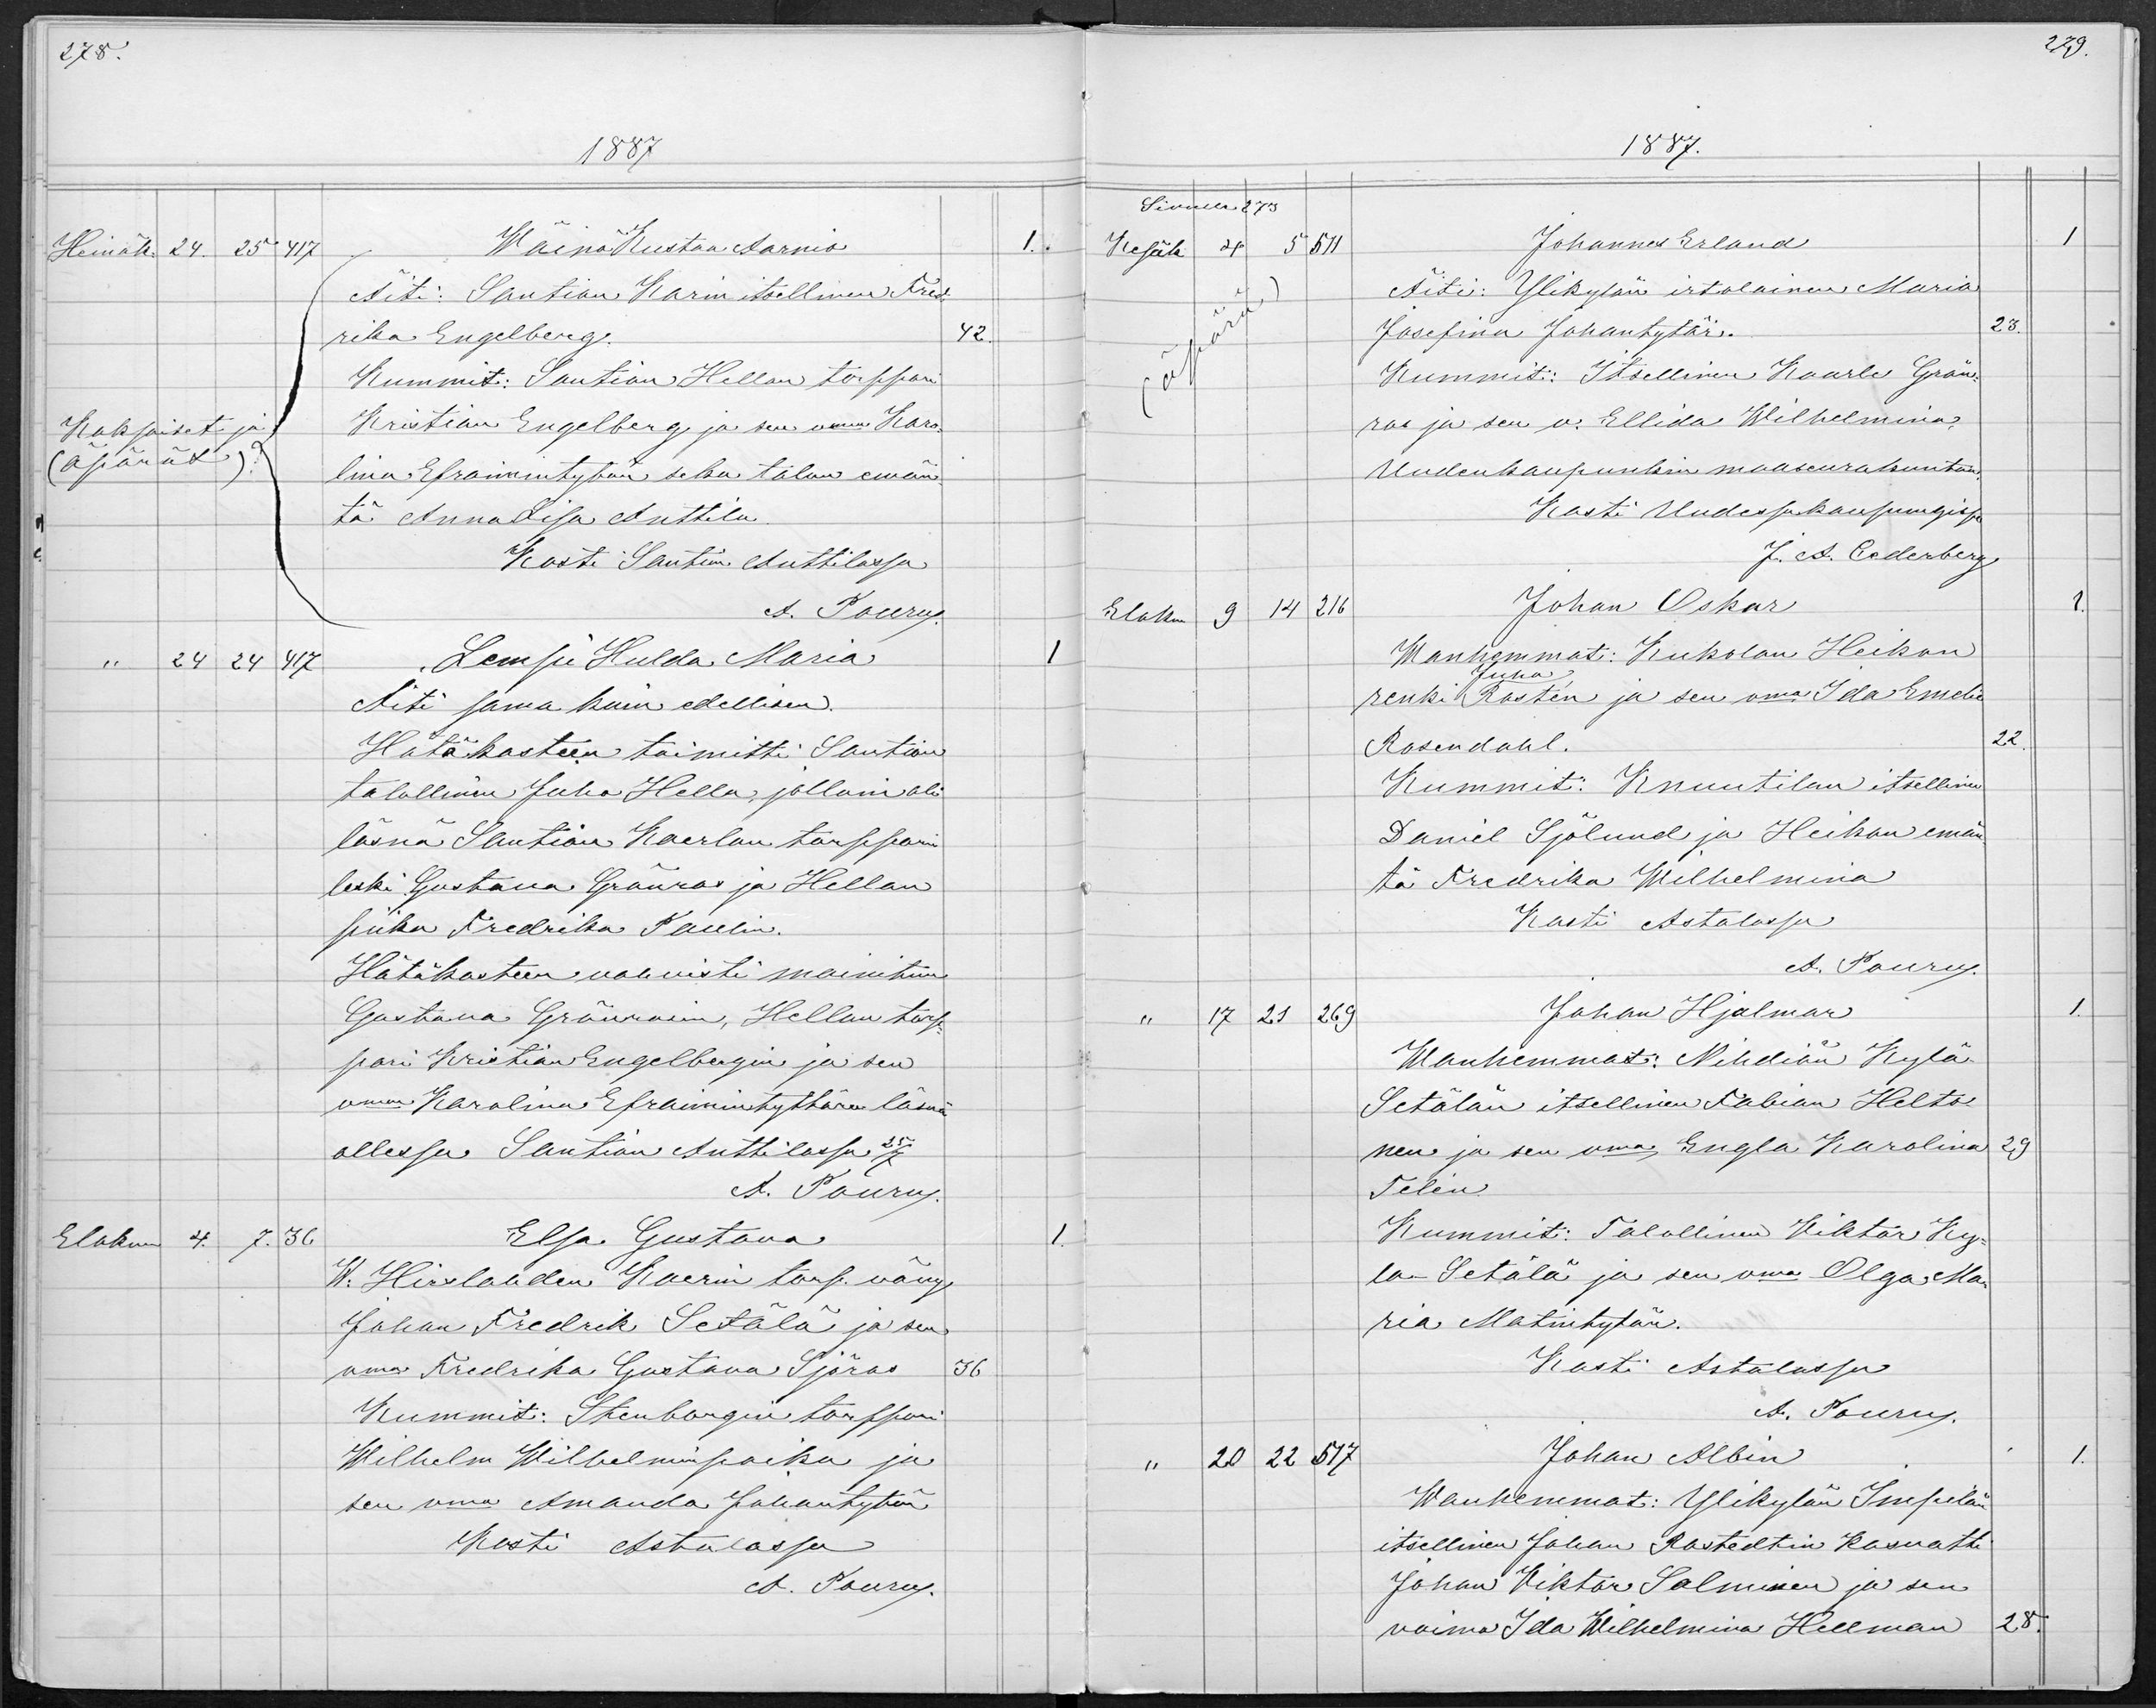 278.
1887
Heinäk. 24. 25 417 Wäinö Kustaa Aarnio 1.
Äiti: Santian Karin itsellinen Fred=
rika Engelberg. 42.
Kummit: Santian Hellan torppari
Kaksoiset ja Kristian Engelberg ja sen vmo Karo=
(äpärät) lina Efraimintytär seka talon emän=
tä Anna Lisa Anttila
Kasti Santian Anttilassa
A. Pouru.
" 24 24 417 Lempi Hulda Maria 1
Äiti sama kuin edellisen.
Hätäkasteen toimitti Santian
talollinen Juho Hella, jolloin oli
läsnä Santian Kaerlan torpparin
leski Gustava Grönroos ja Hellan
piika Fredrika Paulin.
Hätäkasteen vahvisti mainitun
Gustava Grönroosin, Hellan torp=
pari Kristian Engelbergin ja sen
vmon Karolina Efraimintyttären läsnä
ollessa Santian Anttilassa 25/7
A. Pouru.
Elokuu 4. 7. 36 Elsa Gustava 1.
W: Hirslanden Kaerin torp. vävy
Johan Fredrik Setälä ja sen
vmo Fredrika Gustava Sjöros 36
Kummit: Stenborgin torppari
Wilhelm Wilhelminpoika ja
sen vmo Amanda Johantytär
Kasti Astalassa
A. Pouru.
279.
1887.
Sivulla 273
Kesäk 4 5 511 Johannes Erland 1
(äpärä) Äiti: Ylikylän irtolainen Maria
Josefina Johantytär. 23.
Kummit: Itsellinen Kaarle Grön=
roos ja sen v. Ellida Wilhelmina,
Uudenkaupunkin maaseurakunton.
Kasti Uudessakaupungissa
J. A. Cederberg
Elokuu 9 14 216 Johan Oskar 1.
Wanhemmat: Kukolan Heikan
Juho
renki Rostén ja sen vmo Ida Emelie
Rosendahl. 22.
Kummit: Knuutilan itsellinen
Daniel Sjölund ja Heikan emän
tä Fredrika Wilhelmina
Kasti Astalassa
A. Pouru.
" 17 21 269 Johan Hjalmar 1.
Wanhemmat: Nihdiön Kylä
Setälän itsellinen Fabian Helto=
nen ja sen vmo Engla Karolina 29
Telén
Kummit: Talollinen Viktor Ky=
lä-Setälä ja sen vmo Olga Ma=
ria Matintytär.
Kasti Astalassa
A. Pouru.
" 20 22 517 Johan Albin 1.
Wanhemmat: Ylikylän Impolan
itsellinen Johan Rostedtin kasvatti
Johan Viktor Salminen ja sen
vaimo Ida Wilhelmina Hellman 28.